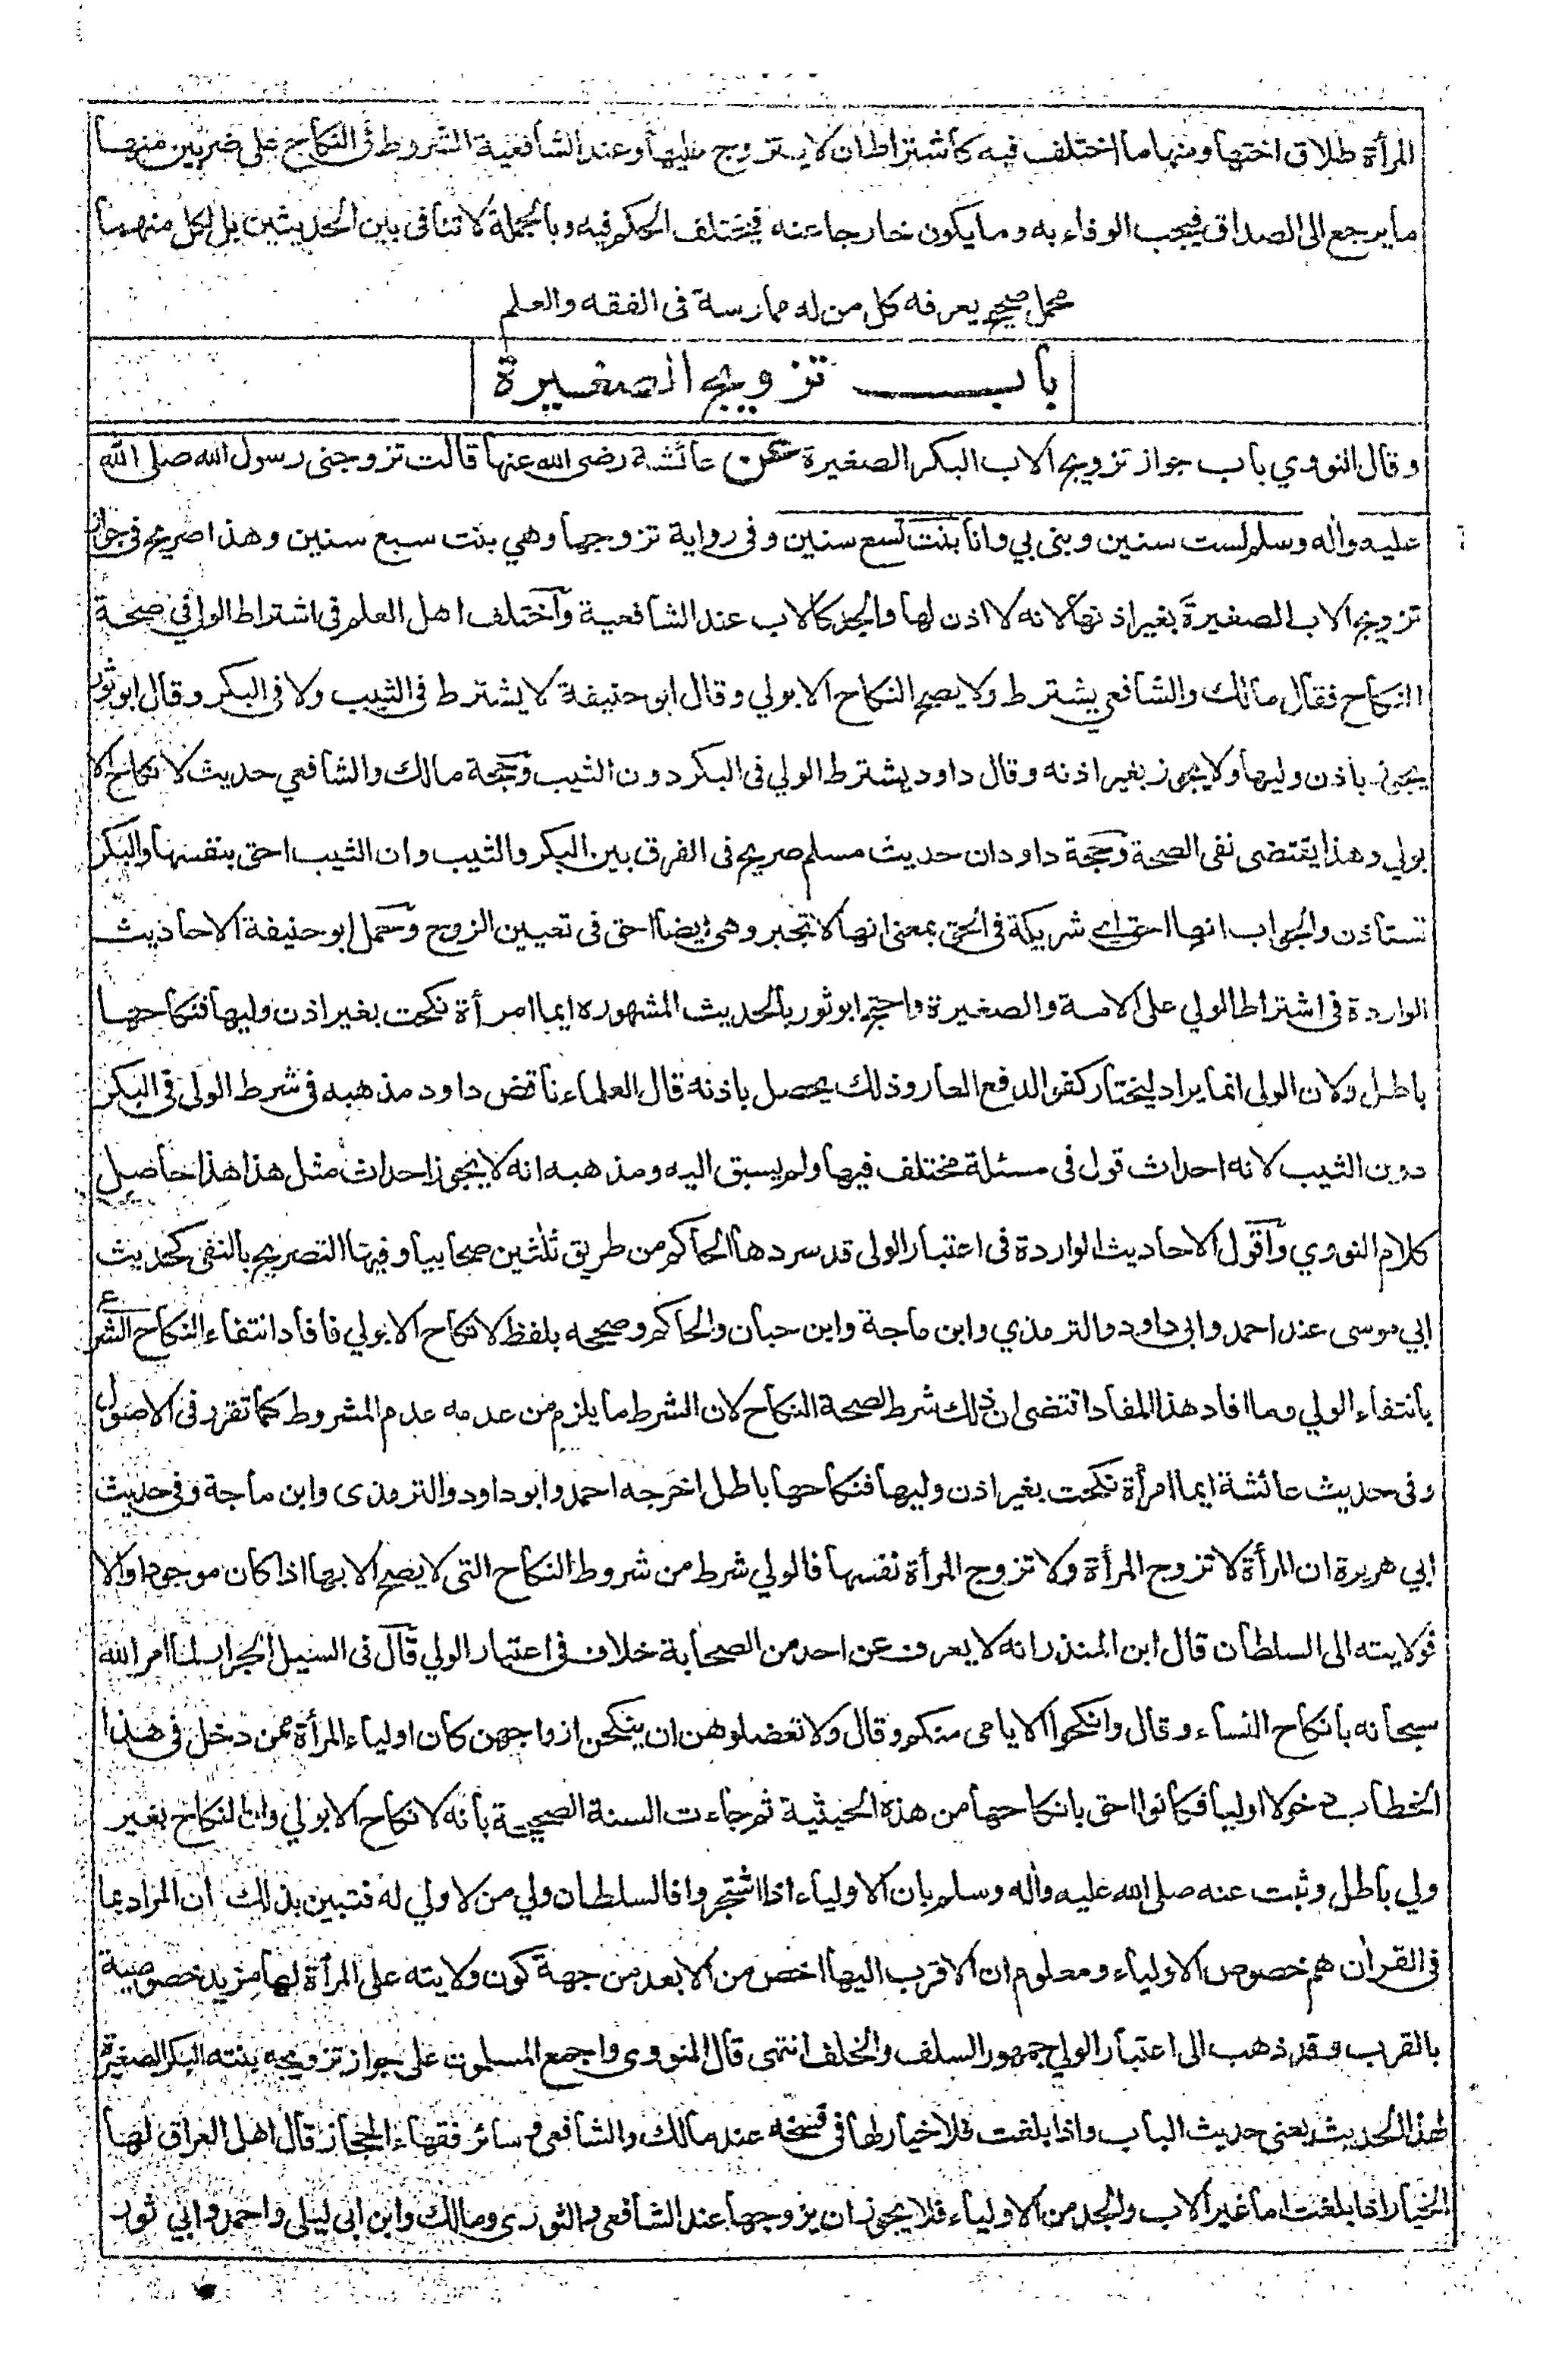 المرأة طلاق اختها ومنها ما اختلف فيه كأشتراط ان لا يتزوج عليها وعند الشافعية الشروط فى النكاح على ضربين منها
ما يرجع الى الصداق فيجب الوفاء به وما يكون خارجا عنه فيختلف الحكم فيه وبالجملة لا تنافى بين الحديثين بل لكل منهما
محمل صحيح يعرفه كل من له ممارسة فى الفقه والعلم
باب تزويج الصغيرة
وقال النووي باب جواز تزويج الاب البكر الصغيرة عن عائشة رضى الله عنها قالت تزوجنى رسول الله صلى الله
عليه واله وسلم لست سنين وبنى بي وانا بنت تسع سنين وفى رواية تزوجها وهي بنت سبع سنين وهذا صريح فى جواز
تزويج الاب الصغيرة بغير اذنها لانه لا اذن لها والجد كالاب عند الشافعية وآختلف اهل العلم فى اشتراط الولي فى صحة
النكاح فقال مالك والشافعي يشترط ولا يصح النكاح الا بولي وقال ابو حنيفة لا يشترط فى الثيب ولا فى البكر وقال ابو ثور
يجوز باذن وليها ولا يجوز بغير اذنه وقال داود يشترط الولي فى البكر دون الثيب وحجة مالك والشافعي حديث لا نكاح الا
بولي وهذا يقتضى نفى الصحة وحجة داود ان حديث مسلم صريح فى الفرق بين البكر والثيب وان الثيب احق بنفسها والبكر
تستأذن والجواب انها احق اي شريكة فى الحق بمعنى انها لا تجبر وهى ايضا احق فى تعيين الزوج وحمل ابو حنيفة الاحاديث
الواردة فى اشتراط الولي على الامة والصغيرة واحتج ابو ثور بالحديث المشهور ايما امرأة نكحت بغير اذن وليها فنكاحها
باطل ولان الولى انما يراد ليختار كفوا لدفع العار وذلك يحصل باذنه قال العلماء ناقض داود مذهبه فى شرط الولى فى البكر
دون الثيب لانه احداث قول فى مسئلة مختلف فيها ولم يسبق اليه ومذهبه انه لا يجوز احداث مثل هذا هذا حاصل
كلام النووي وآقول الاحاديث الواردة فى اعتبار الولى قد سردها الحاكم من طريق ثلثين صحابيا وفيها التصريح بالنفى كحديث
ابي موسى عند احمد وابى داود والترمذي وابن ماجة وابن حبان والحاكم وصححه بلفظ لا نكاح الا بولي فافاد انتفاء النكاح الشرع
بانتفاء الولي وما افاد هذا المفاد اقتضى ان ذلك شرط لصحة النكاح لان الشرط ما يلزم من عدمه عدم المشروط كما تقرر فى الاصول
وفى حديث عائشة ايما امرأة نكحت بغير اذن وليها فنكاحها باطل اخرجه احمد وابو داود والترمذى وابن ماجة وفى حديث
ابي هريرة ان المرأة لا تزوج المرأة ولا تزوج المرأة نفسها فالولي شرط من شروط النكاح التى لا يصح الا بها اذا كان موجودا والا
فولايته الى السلطان قال ابن المنذر انه لا يعرف عن احد من الصحابة خلاف فى اعتبار الولي قآل فى السيل الجرار لنا امر الله
سبحانه بانكاح النساء وقال وانكحوا الايامى منكم وقال ولا تعضلوهن ان ينكحن ازواجهن كان اولياء المرأة ممن دخل فى هذا
الخطاب دخولا اوليا فكانوا احق بانكاحها من هذه الحيثية ثم جاءت السنة الصحيحة بأنه لا نكاح الا بولي وان النكاح بغير
ولي باطل وثبت عنه صلى الله عليه واله وسلم بان الاولياء اذا اشتجروا فالسلطان ولي من لا ولي له فتبين بذلك ان المراد بما
فى القران هم خصوص الاولياء ومعلوم ان الاقرب اليها اخص من الابعد من جهة كون ولايته على المرأة لها مزيد خصوصية
بالقرب وقد ذهب الى اعتبار الولي جمهور السلف والخلف انتهى قال النووى واجمع المسلمون على جواز تزويجه بنته البكر الصغيرة
لهذا الحديث يعنى حديث الباب واذا بلغت فلا خيار لها فى فسخه عند مالك والشافعى وسائر فقهاء الحجاز قال اهل العراق لها
الخيار اذا بلغت اما غير الاب والجد من الاولياء فلا يجوز ان يزوجها عند الشافعى والثورى ومالك وابن ابى ليلى واحمد وابي ثور